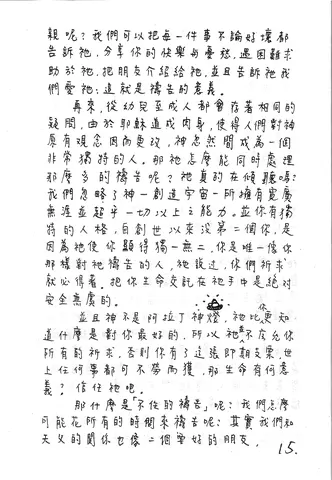 親呢？我們可以把每一件事不論好壞都
告訴祂，分享你的快樂與憂愁，遇困難求
助於祂，把朋友介紹給祂，並且告訴祂我
們愛祂；這就是禱告的意義。
再來，從幼兒至成人都會存著相同的
疑問，由於耶穌道成肉身，使得人們對神
原有觀念因而更改，神忽然間成為一個
非常獨特的人。那祂怎麼能同時處理
那麼多的禱告呢？祂真的在傾聽嗎？
我們忽略了神－創造宇宙－所擁有寬廣
無涯並超乎一切以上之能力。並你有獨
特的人格，自創世以來沒第二個你，是
因為祂使你顯得獨一無二，你是唯一像你
那樣對祂禱告的人，祂說過，你們祈求
就必得著，把你生命交託在祂手中是絕對
安全無虞的。
並且神不是阿拉丁神燈，祂比你更知
道什麼是對你最好的，所以祂不應允你
所有的祈求，否則你有了這張即期支票，世
上任何事都可不勞而獲，那生命有何意
義？信任祂吧。
那什麼是「不住的禱告」呢？我們怎麼
可能花所有的時間來禱告呢？其實我們和
天父的關係也像二個要好的朋友，
15.